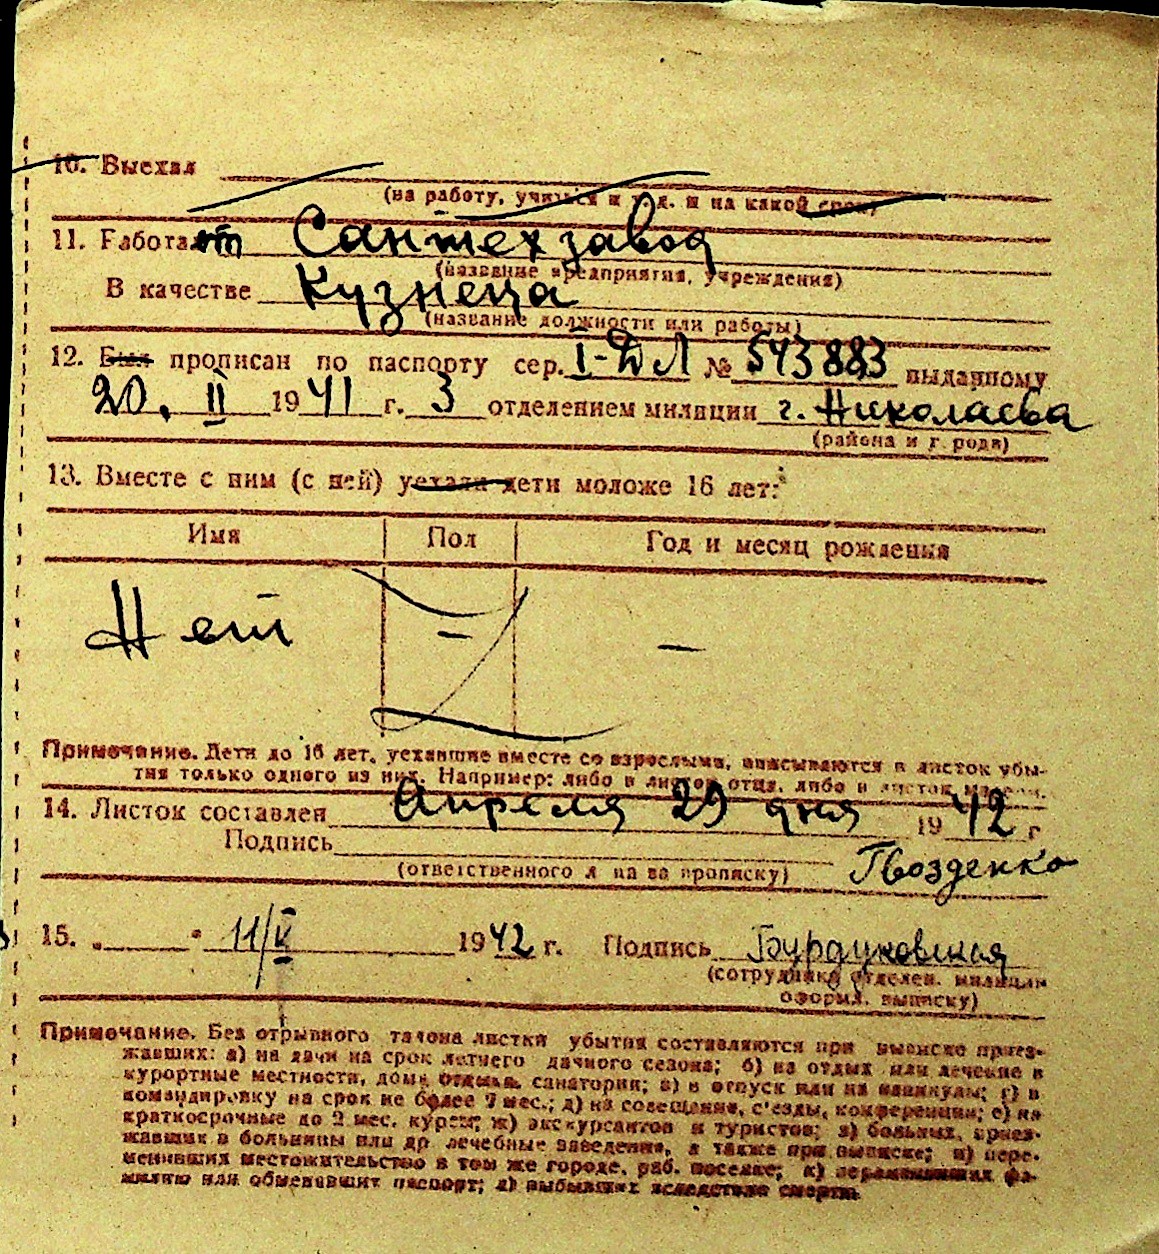 10. Выехал
(на работу, учиться и т. д. и на какой срок)
11. Работает Сантехзавод
(название предприятия, учреждения)
В качестве Кузнеца
(название должности или работы)
12. Был прописан по паспорту сер. I-ДЛ № 543883 выданному
20. II 1941 г. 3 отделением милиции г. Николаева
(района и города)
13. Вместе с ним (с ней) уехали дети моложе 16 лет:
Имя Пол Год и месяц рождения
Нет — —
Примечание. Дети до 16 лет, уехавшие вместе со взрослыми, вписываются в листок убы-
тия только одного из них. Например: либо в листок отца, либо в листок матери.
14. Листок составлен Апреля 29 дня 1942 г
Подпись Гвозденко
(ответственного лица за прописку)
15. „ " 11/V 1942 г. Подпись
(сотрудника отделен. милиции
оформл. выписку)
Примечание. Без отрывного талона листки убытия составляются при выписке приез-
жавших: а) на дачи на срок летнего дачного сезона; б) на отдых или лечение в
курортные местности, дома отдыха, санатории; в) в отпуск или на каникулы; г) в
командировку на срок не более 2 мес.; д) на совещания, с'езды, конференции; е) на
краткосрочные до 2 мес. курсы; ж) экскурсантов и туристов; з) больных, приез-
жавших в больницы или др. лечебные заведения, а также при выписке; и) пере-
менивших местожительство в том же городе, раб. поселке; к) переменивших фа-
милию или обменявших паспорт; л) выбывших вследствие смерти.